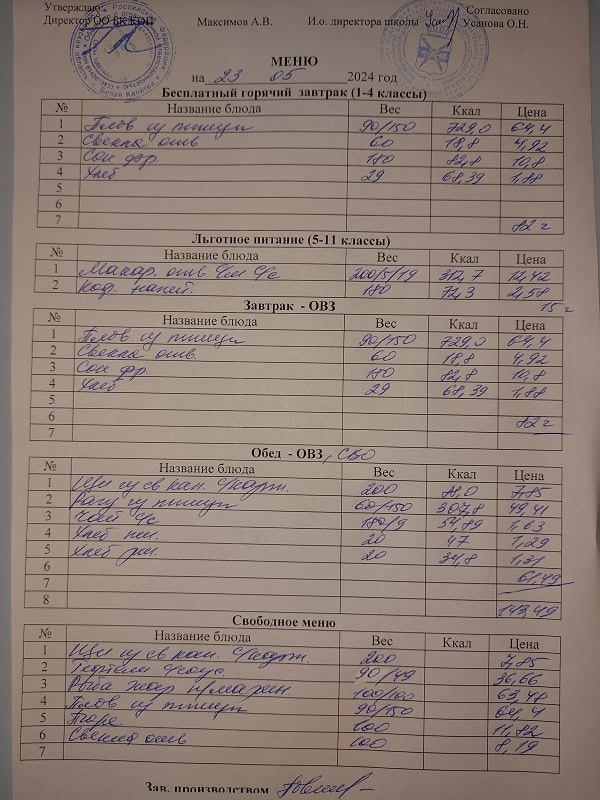 Утверждаю: Согласовано
Директор ОО БК КОП Максимов А.В. И.о. директора школы Усанова О.Н.
МЕНЮ
на 23 05 2024 год
Бесплатный горячий завтрак (1-4 классы)
№ Название блюда Вес Ккал Цена
1 Плов из птицы 90/150 729,0 64,4
2 Свекла отв 60 18,8 4,92
3 Сок фр. 180 82,8 10,8
4 Хлеб 29 68,39 1,88
5
6
7 82 г
Льготное питание (5-11 классы)
№ Название блюда Вес Ккал Цена
1 Макар. отв с/м с/с 200/5/19 312,7 12,42
2 Коф. напит. 180 72,3 2,58
15 г
Завтрак - ОВЗ
№ Название блюда Вес Ккал Цена
1 Плов из птицы 90/150 729,0 64,4
2 Свекла отв. 60 18,8 4,92
3 Сок фр. 180 82,8 10,8
4 Хлеб 29 68,39 1,88
5
6 82 г
7
Обед - ОВЗ, СВО
№ Название блюда Вес Ккал Цена
1 Щи из св кап. с/карт. 200 7,85
2 Рагу из птицы 60/150 307,8 49,41
3 Чай с/с 180/9 54,89 1,63
4 Хлеб пш. 20 47 1,29
5 Хлеб рж. 20 34,8 1,31
6
7 61,49
8 143,49
Свободное меню
№ Название блюда Вес Ккал Цена
1 Щи из св кап. с/карт. 200 7,85
2 Тефтели с/соус 90/49 36,66
3 Рыба жар п/марин 100/100 63,48
4 Плов из птицы 90/150 64,4
5 Пюре 100 11,82
6 Свекла отв 100 8,19
7
Зав. производством